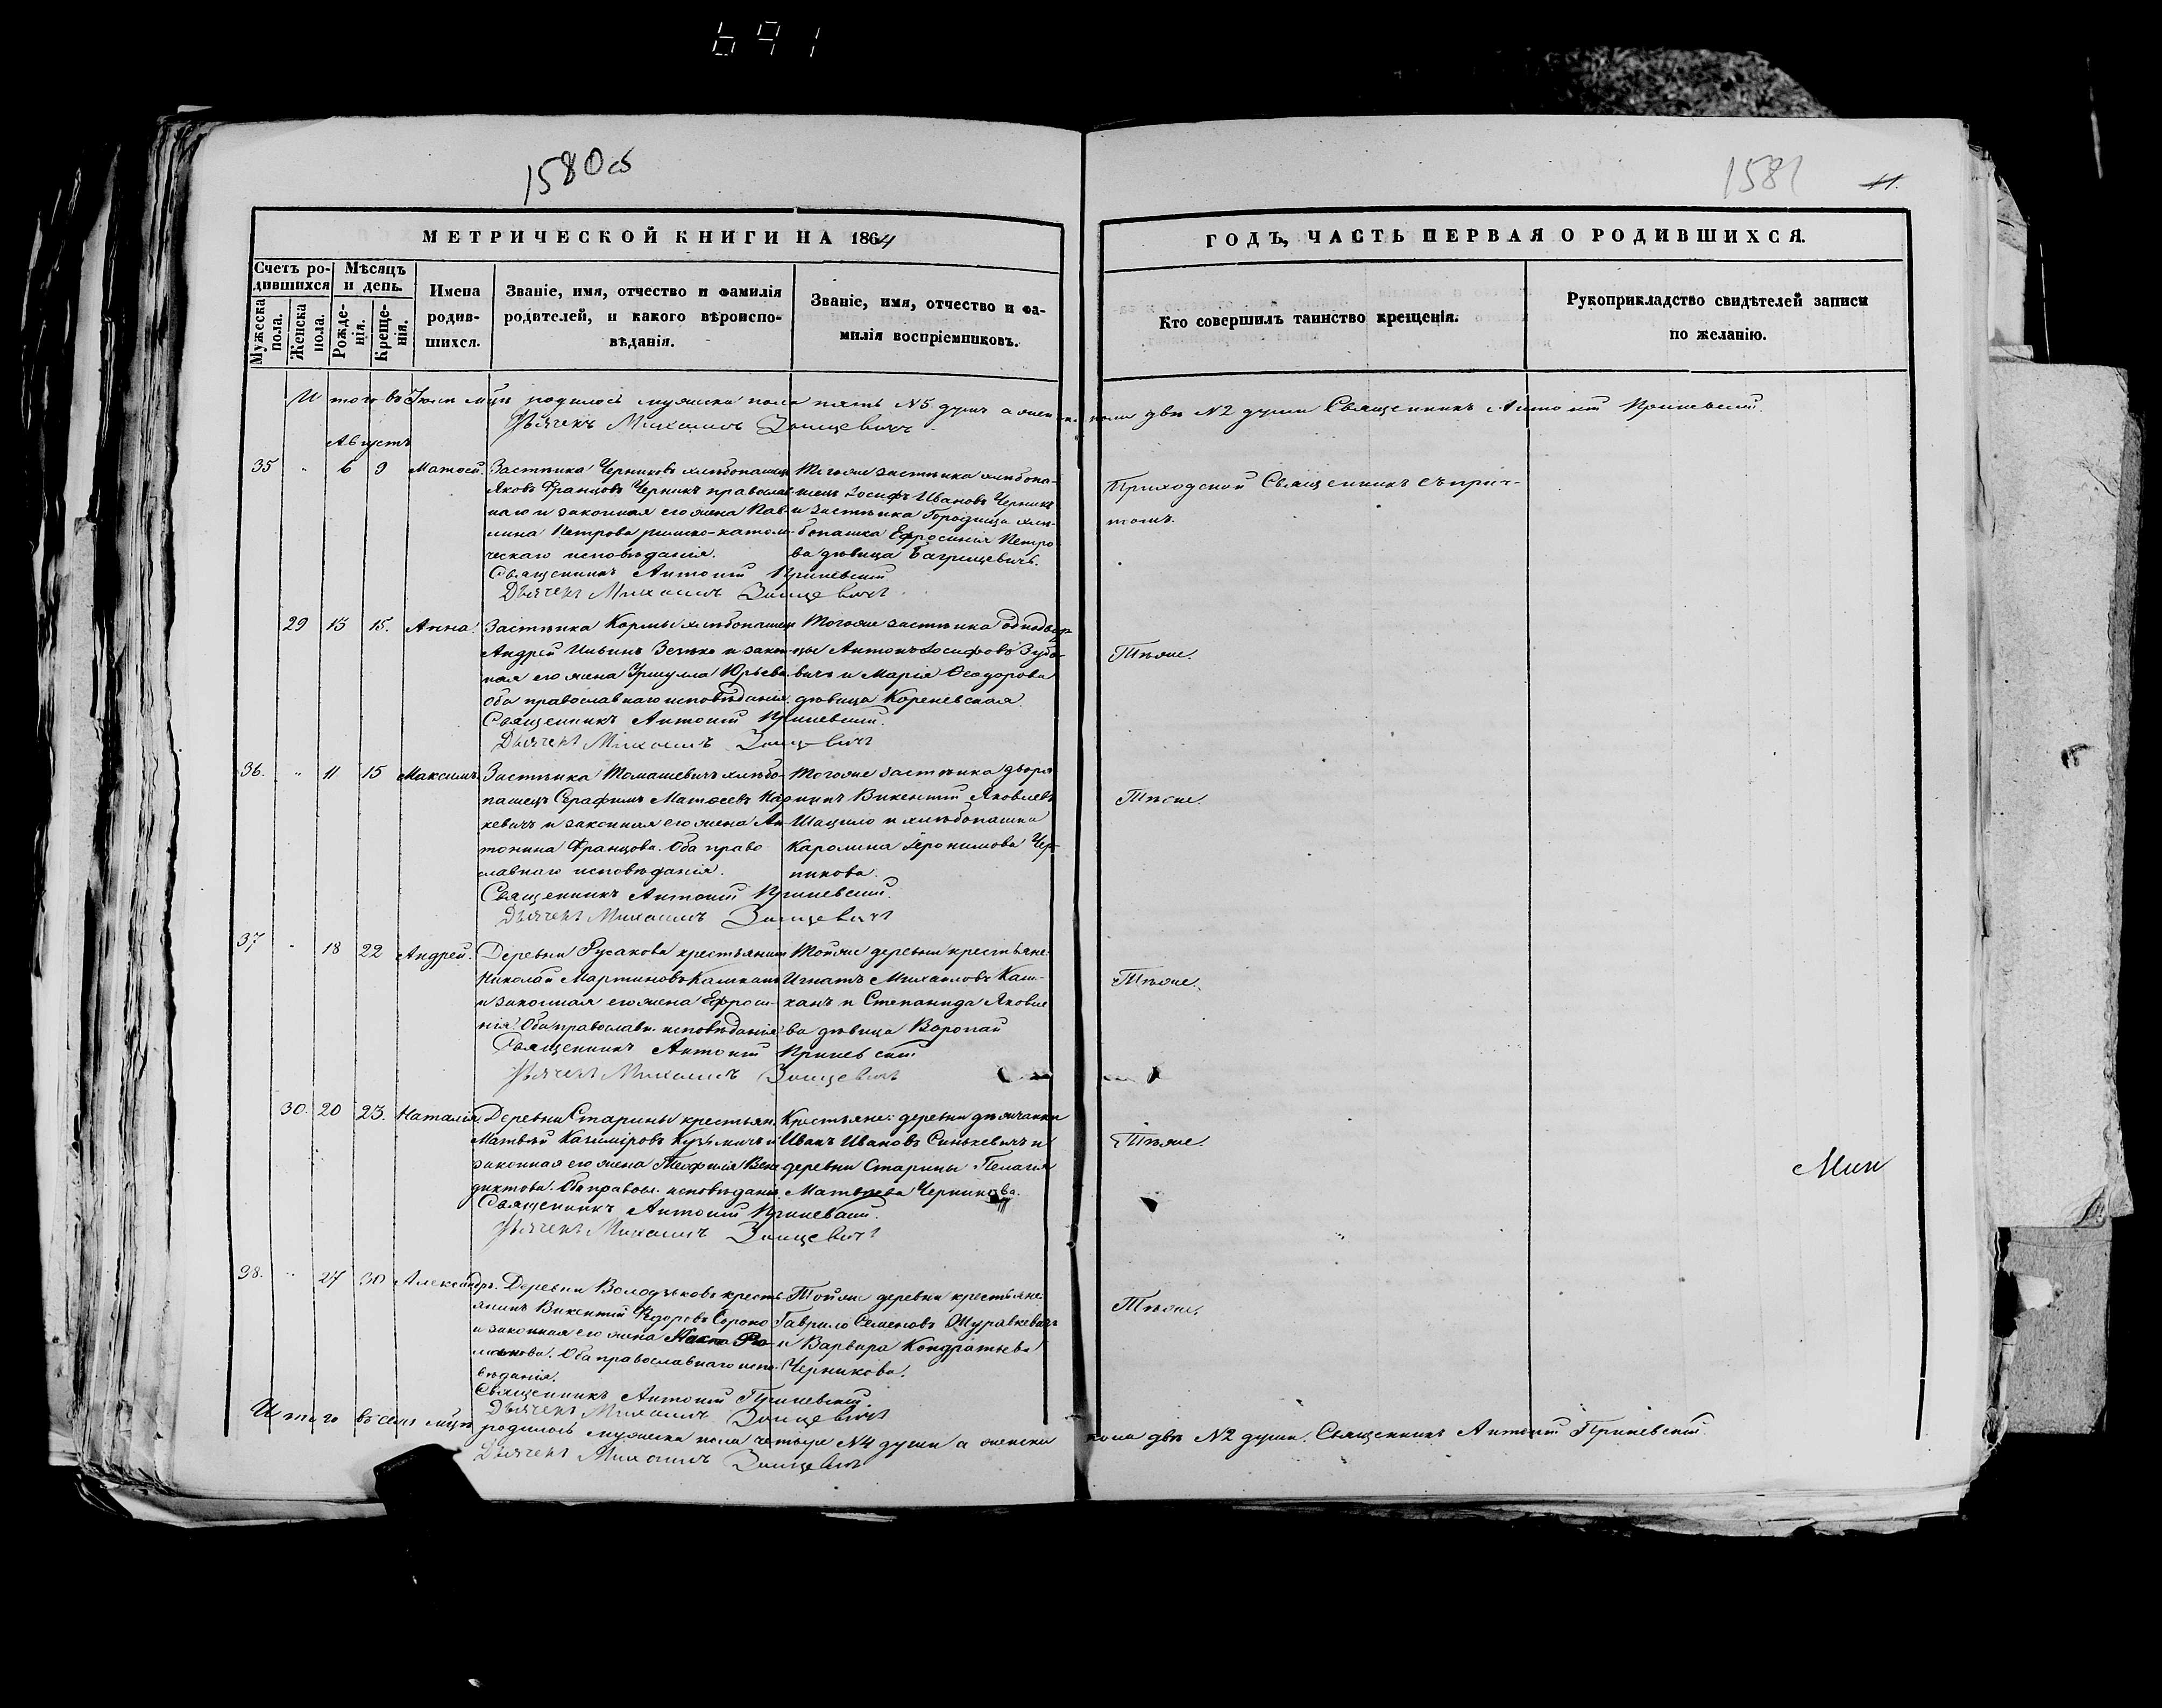 691
1580об
1581
11.
МЕТРИЧЕСКОЙ КНИГИ НА 1864
ГОДЪ, ЧАСТЬ ПЕРВАЯ О РОДИВШИХСЯ.
Счетъ ро-
дившихся
Мужеска
пола.
Женска
пола.
Мѣсяцъ
и день.
Рожде-
нія.
Креще-
нія.
Имена
родив-
шихся.
Званіе, имя, отчество и фамилія
родителей, и какого вѣроиспо-
вѣданія.
Званіе, имя, отчество и фа-
милія воспріемниковъ.
Кто совершилъ таинство крещенія.
Рукоприкладство свидѣтелей записи
по желанію.
Итого въ Іюлѣ мцѣ родилось мужеска пола пять №5 душъ а женска пола двѣ №2 души Священникъ Антоній
Дьячекъ Михаилъ
Августъ
35 " 6 9 Матѳей.
Застѣнка Черниковъ хлѣбопашецъ
Яковъ Францовъ Черникъ православ-
наго и законная его жена Пав-
лина Петрова римско-католи-
ческаго исповѣданія.
Священникъ Антоній
Дьячекъ Михаилъ
Тогоже застѣнка хлѣбопа-
шецъ Іосифъ Ивановъ Черникъ
и застѣнка Городища хлѣ-
бопашка Ефросинія Петро-
ва дѣвица Багрицевичъ.
Приходской Священникъ съ прич-
томъ.
29 13 15. Анна.
Застѣнка Кормы хлѣбопашецъ
Андрей Ильинъ Зенько и закон-
ная его жена Уршулла Юрьева
оба православнаго исповѣданія.
Священникъ Антоній
Дьячекъ Михаилъ
Тогоже застѣнка однодвор-
цы Антонъ Іосифовъ
вичъ и Марія Ѳеодорова
дѣвица Кореневская.
Тѣже.
36. " 11 15 Максимъ.
Застѣнка Томашевичъ хлѣбо-
пашецъ Серафимъ Матѳеевъ
кевичъ и законная его жена Ан-
тонина Францова. Оба право-
славнаго исповѣданія.
Священникъ Антоній
Дьячекъ Михаилъ
Тогоже застѣнка дворя-
нинъ Викентій Яковлевъ
Шацило и хлѣбопашка
Каролина Іеронимова Чер-
никова.
Тѣже.
37 " 18 22 Андрей.
Деревни Русакова крестьянинъ
Николай Мартиновъ Кашканъ
и законная его жена Ефроси-
нія. Оба православн. исповѣданія
Священникъ Антоній
Дьячекъ Михаилъ
Тойже деревни крестьяне
Игнатъ Михаиловъ Каш-
канъ и Степанида Яковле-
ва дѣвица Воропай
Тѣже.
30. 20 23. Наталія.
Деревни Старины крестьян.
Матвѣй Казиміровъ Кузьмичъ и
законная его жена Теофилія Вене-
диктова. Оба правосл. исповѣданія
Священникъ Антоній
Дьячекъ Михаилъ
Крестьяне: деревни
Иванъ Ивановъ Синкевичъ и
деревни Старины Пелагія
Матвѣева Черникова.
Тѣже.
38. " 27 30 Александръ.
Деревни Володьковъ кресть-
янинъ Викентій Ѳедоровъ Сороко
и законная его жена
Оба православнаго испо-
вѣданія.
Священникъ Антоній
Дьячекъ Михаилъ
Тойже деревни крестьяне:
Гаврило Семеновъ Журавкевичъ
и Варвара Кондратьева
Черникова.
Тѣже.
Итого въ семъ мцѣ родилось мужеска пола четыре №4 души а женска пола двѣ №2 души. Священникъ Антоній
Дьячекъ Михаилъ
Мин